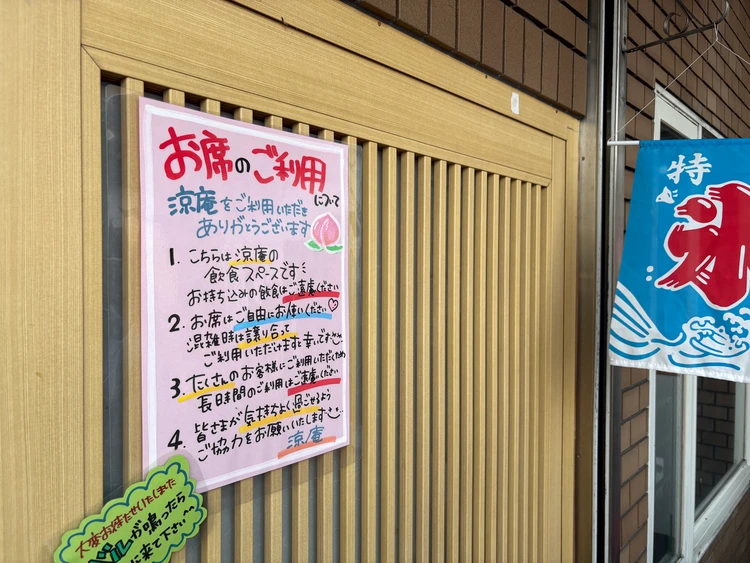 お席のご利用
について
涼庵をご利用いただき
ありがとうございます
1. こちらは涼庵の
飲食スペースです!
お持ち込みの飲食はご遠慮ください
2. お席はご自由にお使いください♡
混雑時は譲り合って
ご利用いただけますと幸いです
3. たくさんのお客様にご利用いただくため
長時間のご利用はご遠慮ください
4. 皆さまが気持ちよく過ごせるよう
ご協力をお願いいたします
涼庵
大変お待たせいたしました
ベルが鳴ったら
に来て下さい^^
特
氷